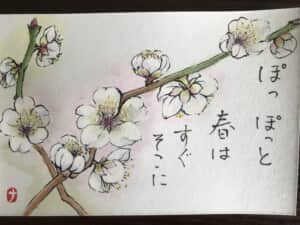 ぽっぽっと
春は
すぐ
そこに
ナ